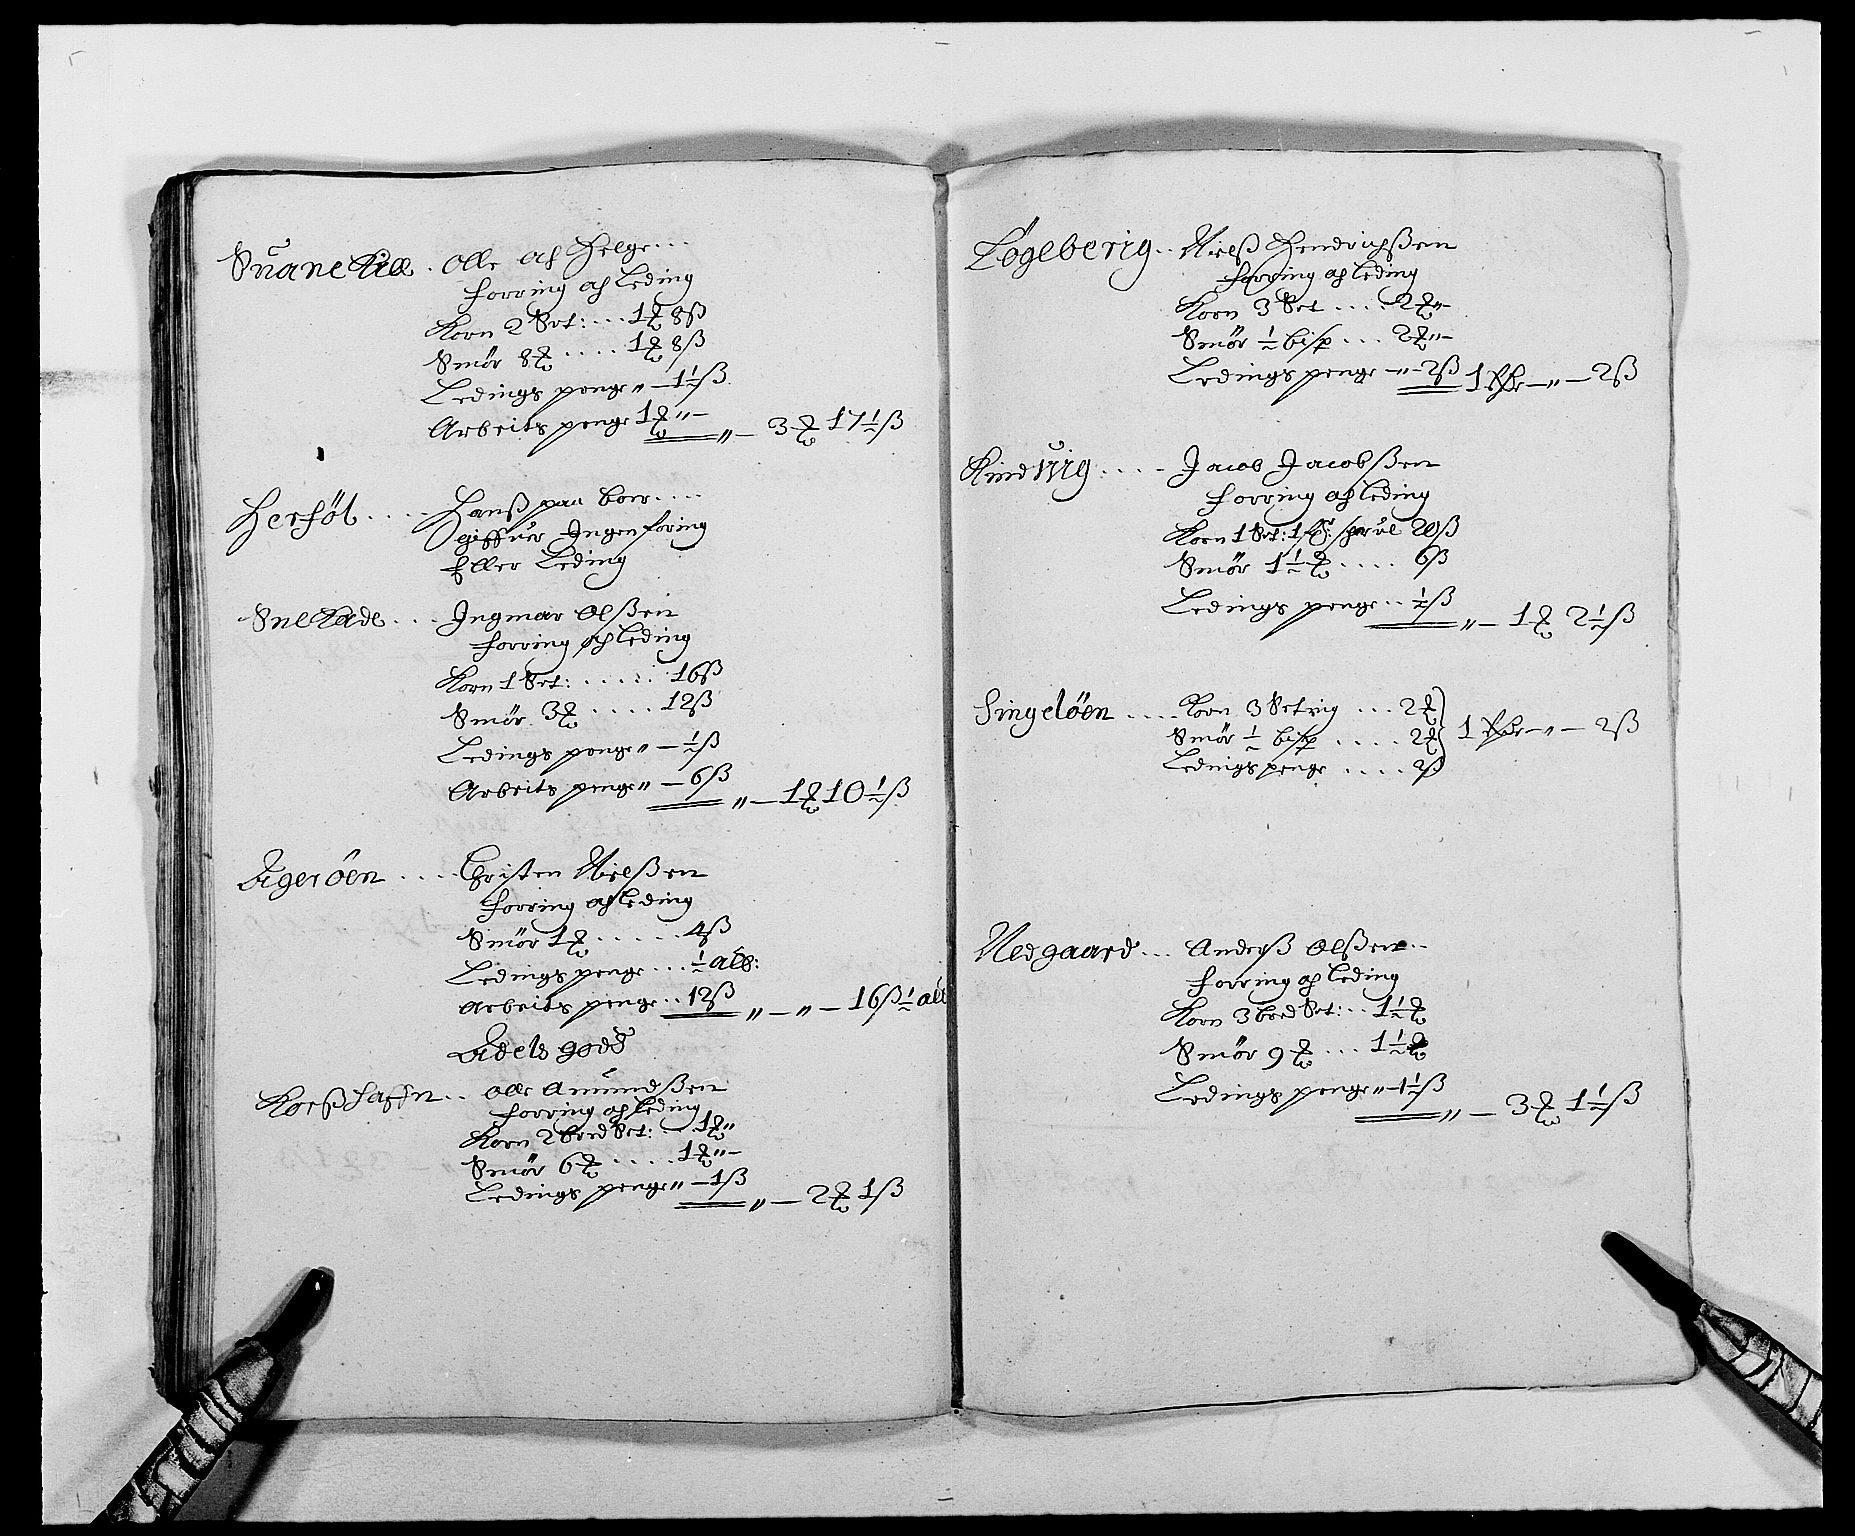 Suanekill . Olle af Helge ...
Forring af Leding
Korn 2 Set: ... 1 ℔ 8 ß
Smör 8 ℔ .... 1 ℔ 8 ß
Ledings penge " – 1½ ß
Arbeits penge 1 ℔ " – " – 3 ℔ 17½ ß
Herföl .... Hanß paa boer ....
giffuer Ingen foring
Eller Leding
Snekade ... Ingmar Olßen
Forring af Leding
Korn 1 Set: ..... 16 ß
Smör 3 ℔ .... 12 ß
Ledings penge " – ½ ß
Arbeits penge " – 6 ß " – 1 ℔ 10½ ß
Ageröen .... Christen Nielßen
Forring af leding
Smör 1 ℔ ..... 4 ß
Ledings penge ... ½ alb:
Arbeits penge .. 12 ß " – " – 16 ß ½ alb
Adels godß
Korßhafn .. Olle Amundßen
Forring af leding
Korn 2 bord Set: ... 1 ℔ "
Smör 6 ℔ .... 1 ℔ " –
Ledings penge " – 1 ß " – 2 ℔ 1 ß
Løgeberig .. Nielß Hendrichßen
Forring af leding
Korn 3 Set .... 2 ℔ " –
Smör ½ bisp ... 2 ℔ " –
Ledings penge – " – 2 ß 1 Rdr – " – 2 ß
Kindvig .... Jacob Jacobßen
Forring af leding
Korn 1 Set: 1 20 ß
Smör 1½ ℔ .... 6 ß
Ledings penge .. ½ ß " – 1 ℔ 2½ ß
Singelöen .... Korn 3 Setvig ... 2 ℔
Smör ½ bisp .... 2 ℔ 1 Rdr – " – 2 ß
Ledings penge .... 2 ß
Nedgaard ... Anderß Olßen ..
Forring af leding
Korn 3 bord Set: .. 1½ ℔
Smör 9 ℔ ... 1½ ℔
Ledings penge " – 1½ ß " – 3 ℔ 1½ ß